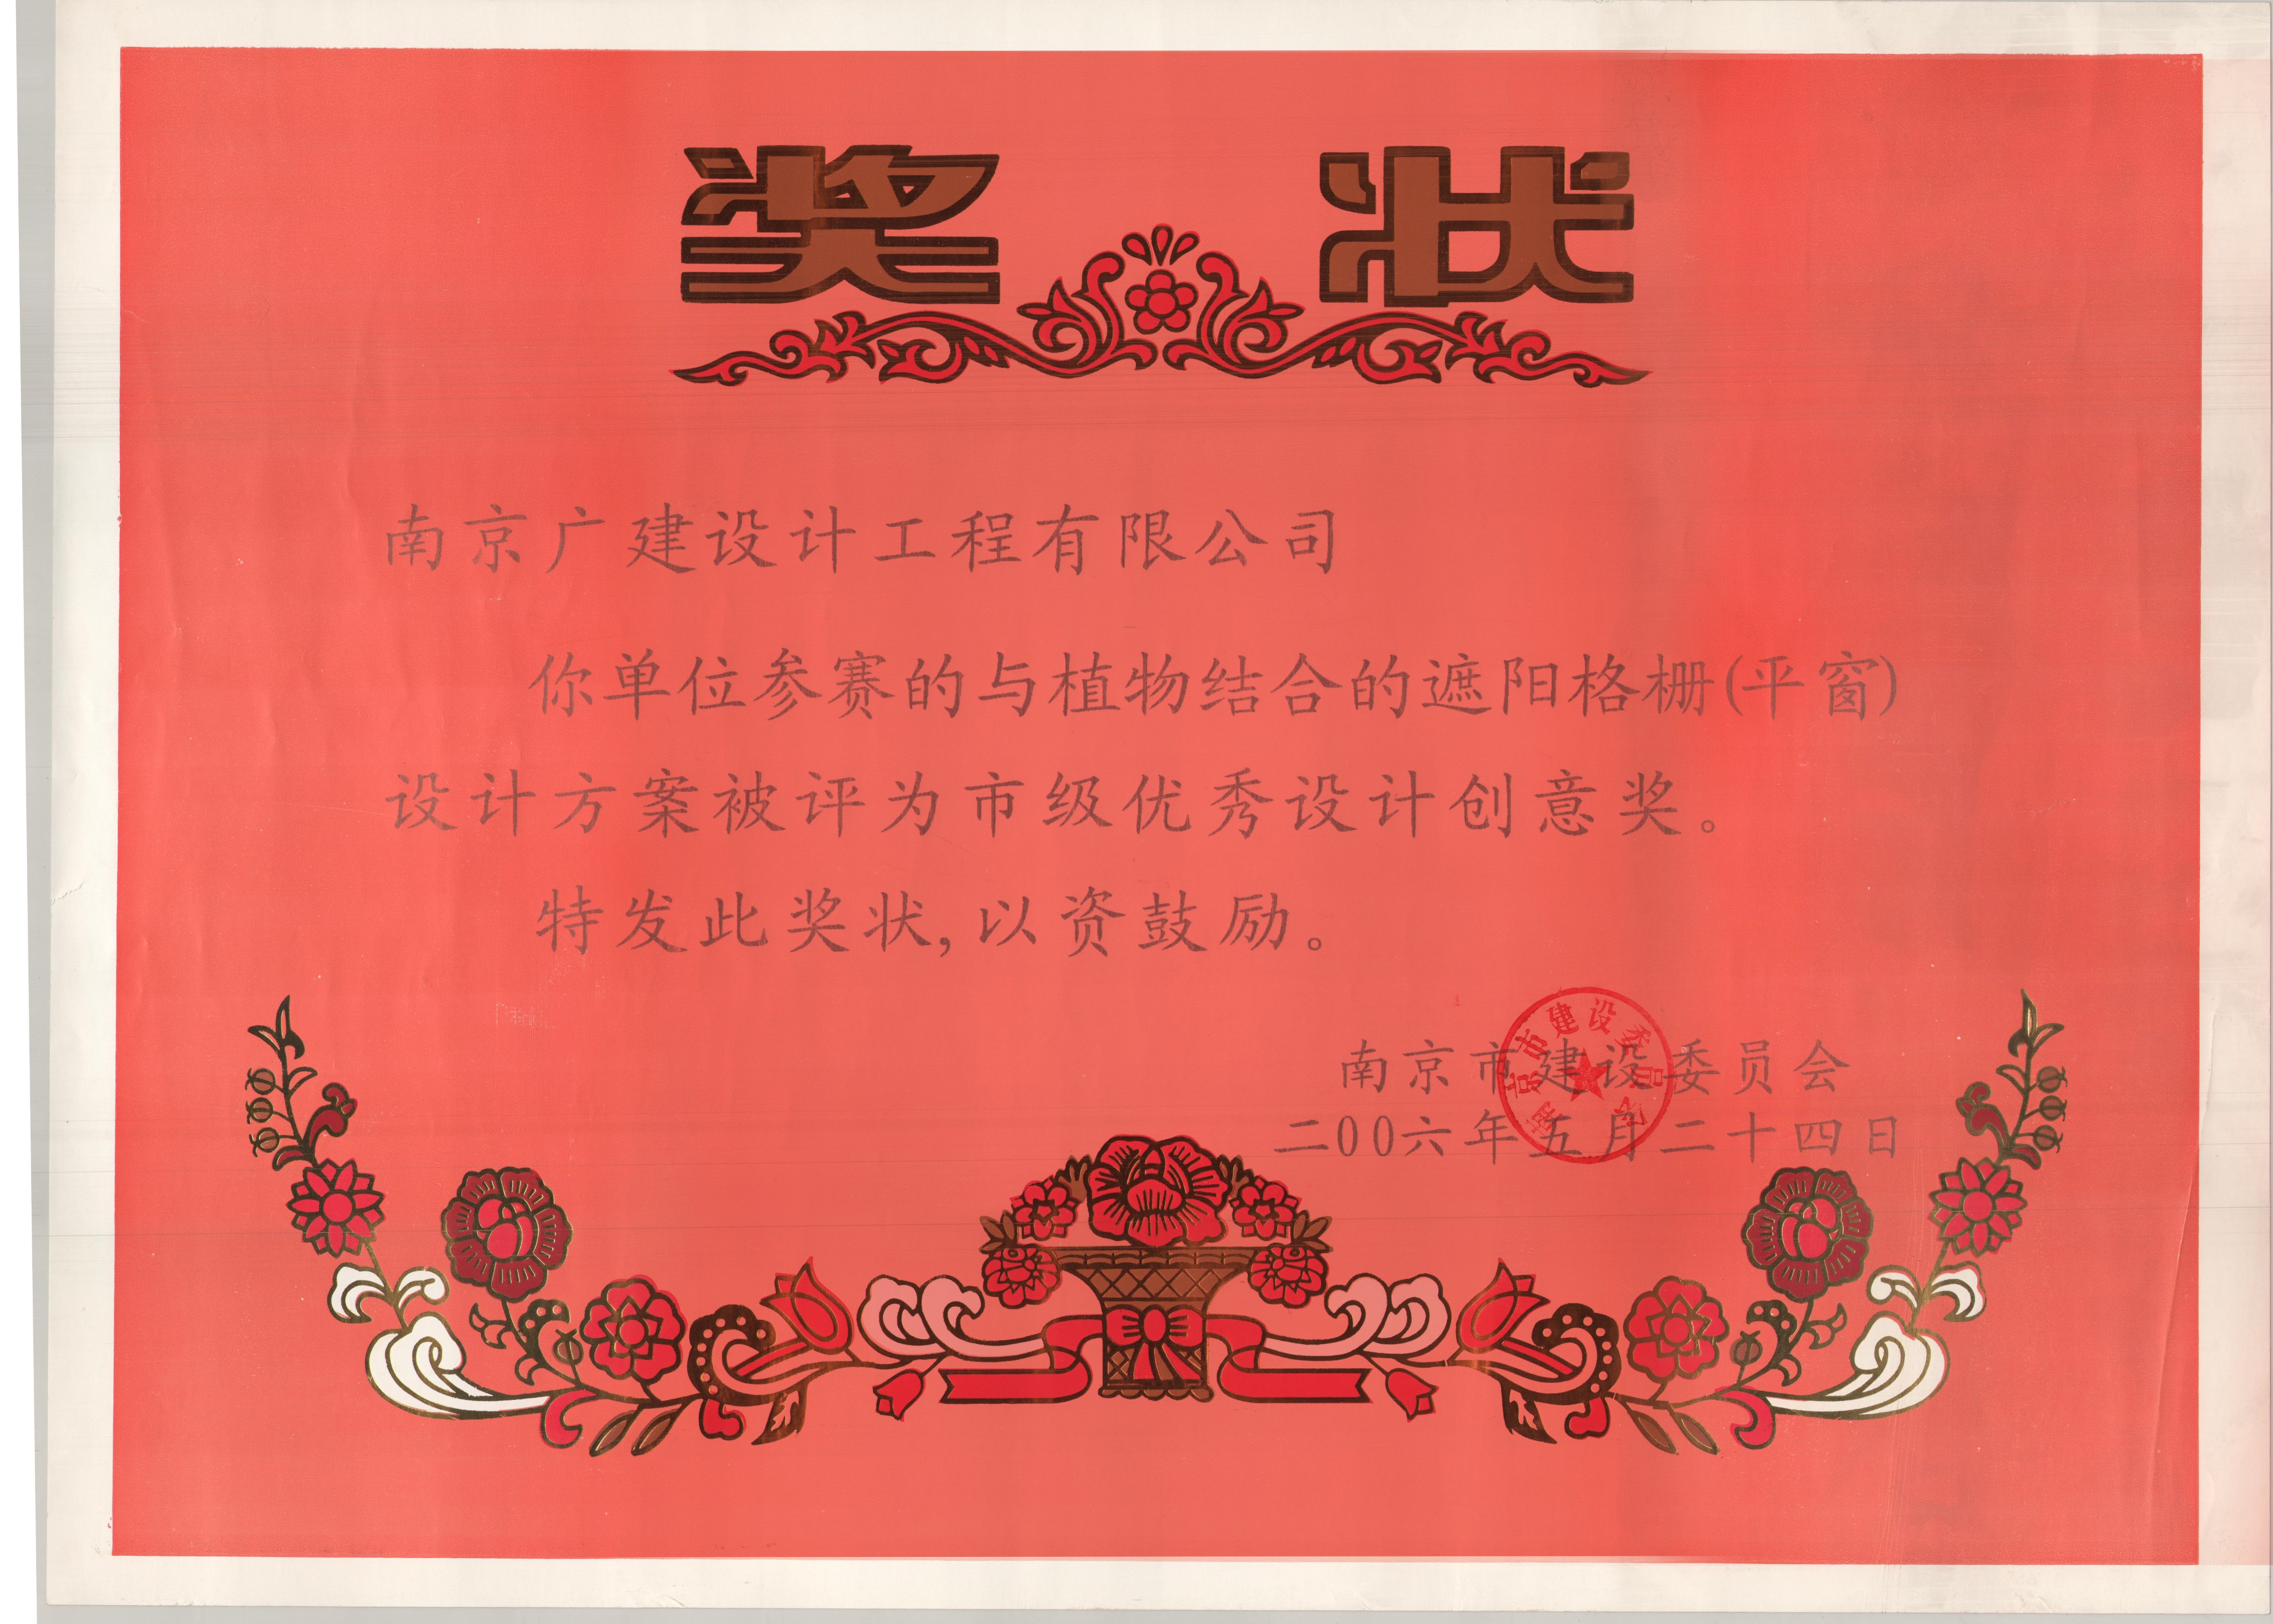 奖状
南京广建设计工程有限公司
你单位参赛的与植物结合的遮阳格栅(平窗)
设计方案被评为市级优秀设计创意奖。
特发此奖状,以资鼓励。
南京市建设委员会
南京市建设委员会
二00六年五月二十四日